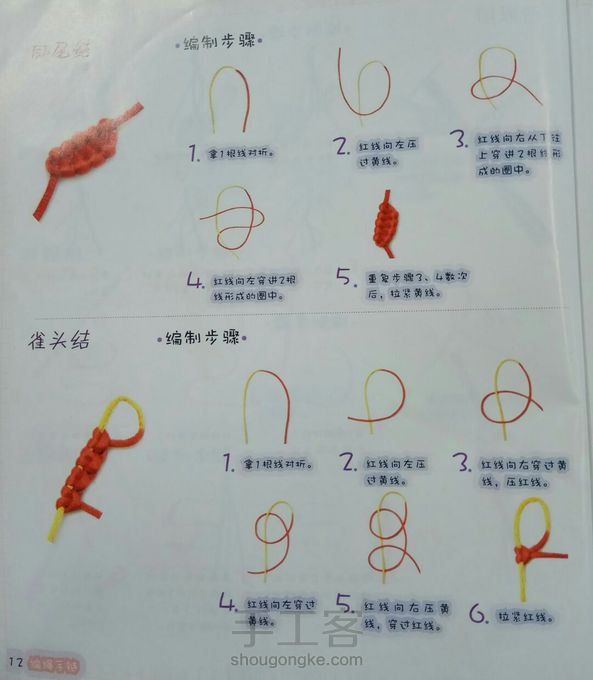 凤尾结
•编制步骤•
1. 拿1根线对折。
2. 红线向左压
过黄线。
3. 红线向右从下往
上穿进2根线形
成的圈中。
4. 红线向左穿进2根
线形成的圈中。
5. 重复步骤3、4数次
后，拉紧黄线。
雀头结
•编制步骤•
1. 拿1根线对折。
2. 红线向左压
过黄线。
3. 红线向右穿过黄
线，压红线。
4. 红线向左穿过
黄线。
5. 红线向右压黄
线，穿过红线。
6. 拉紧红线。
手工客
shougongke.com
12 编绳手链